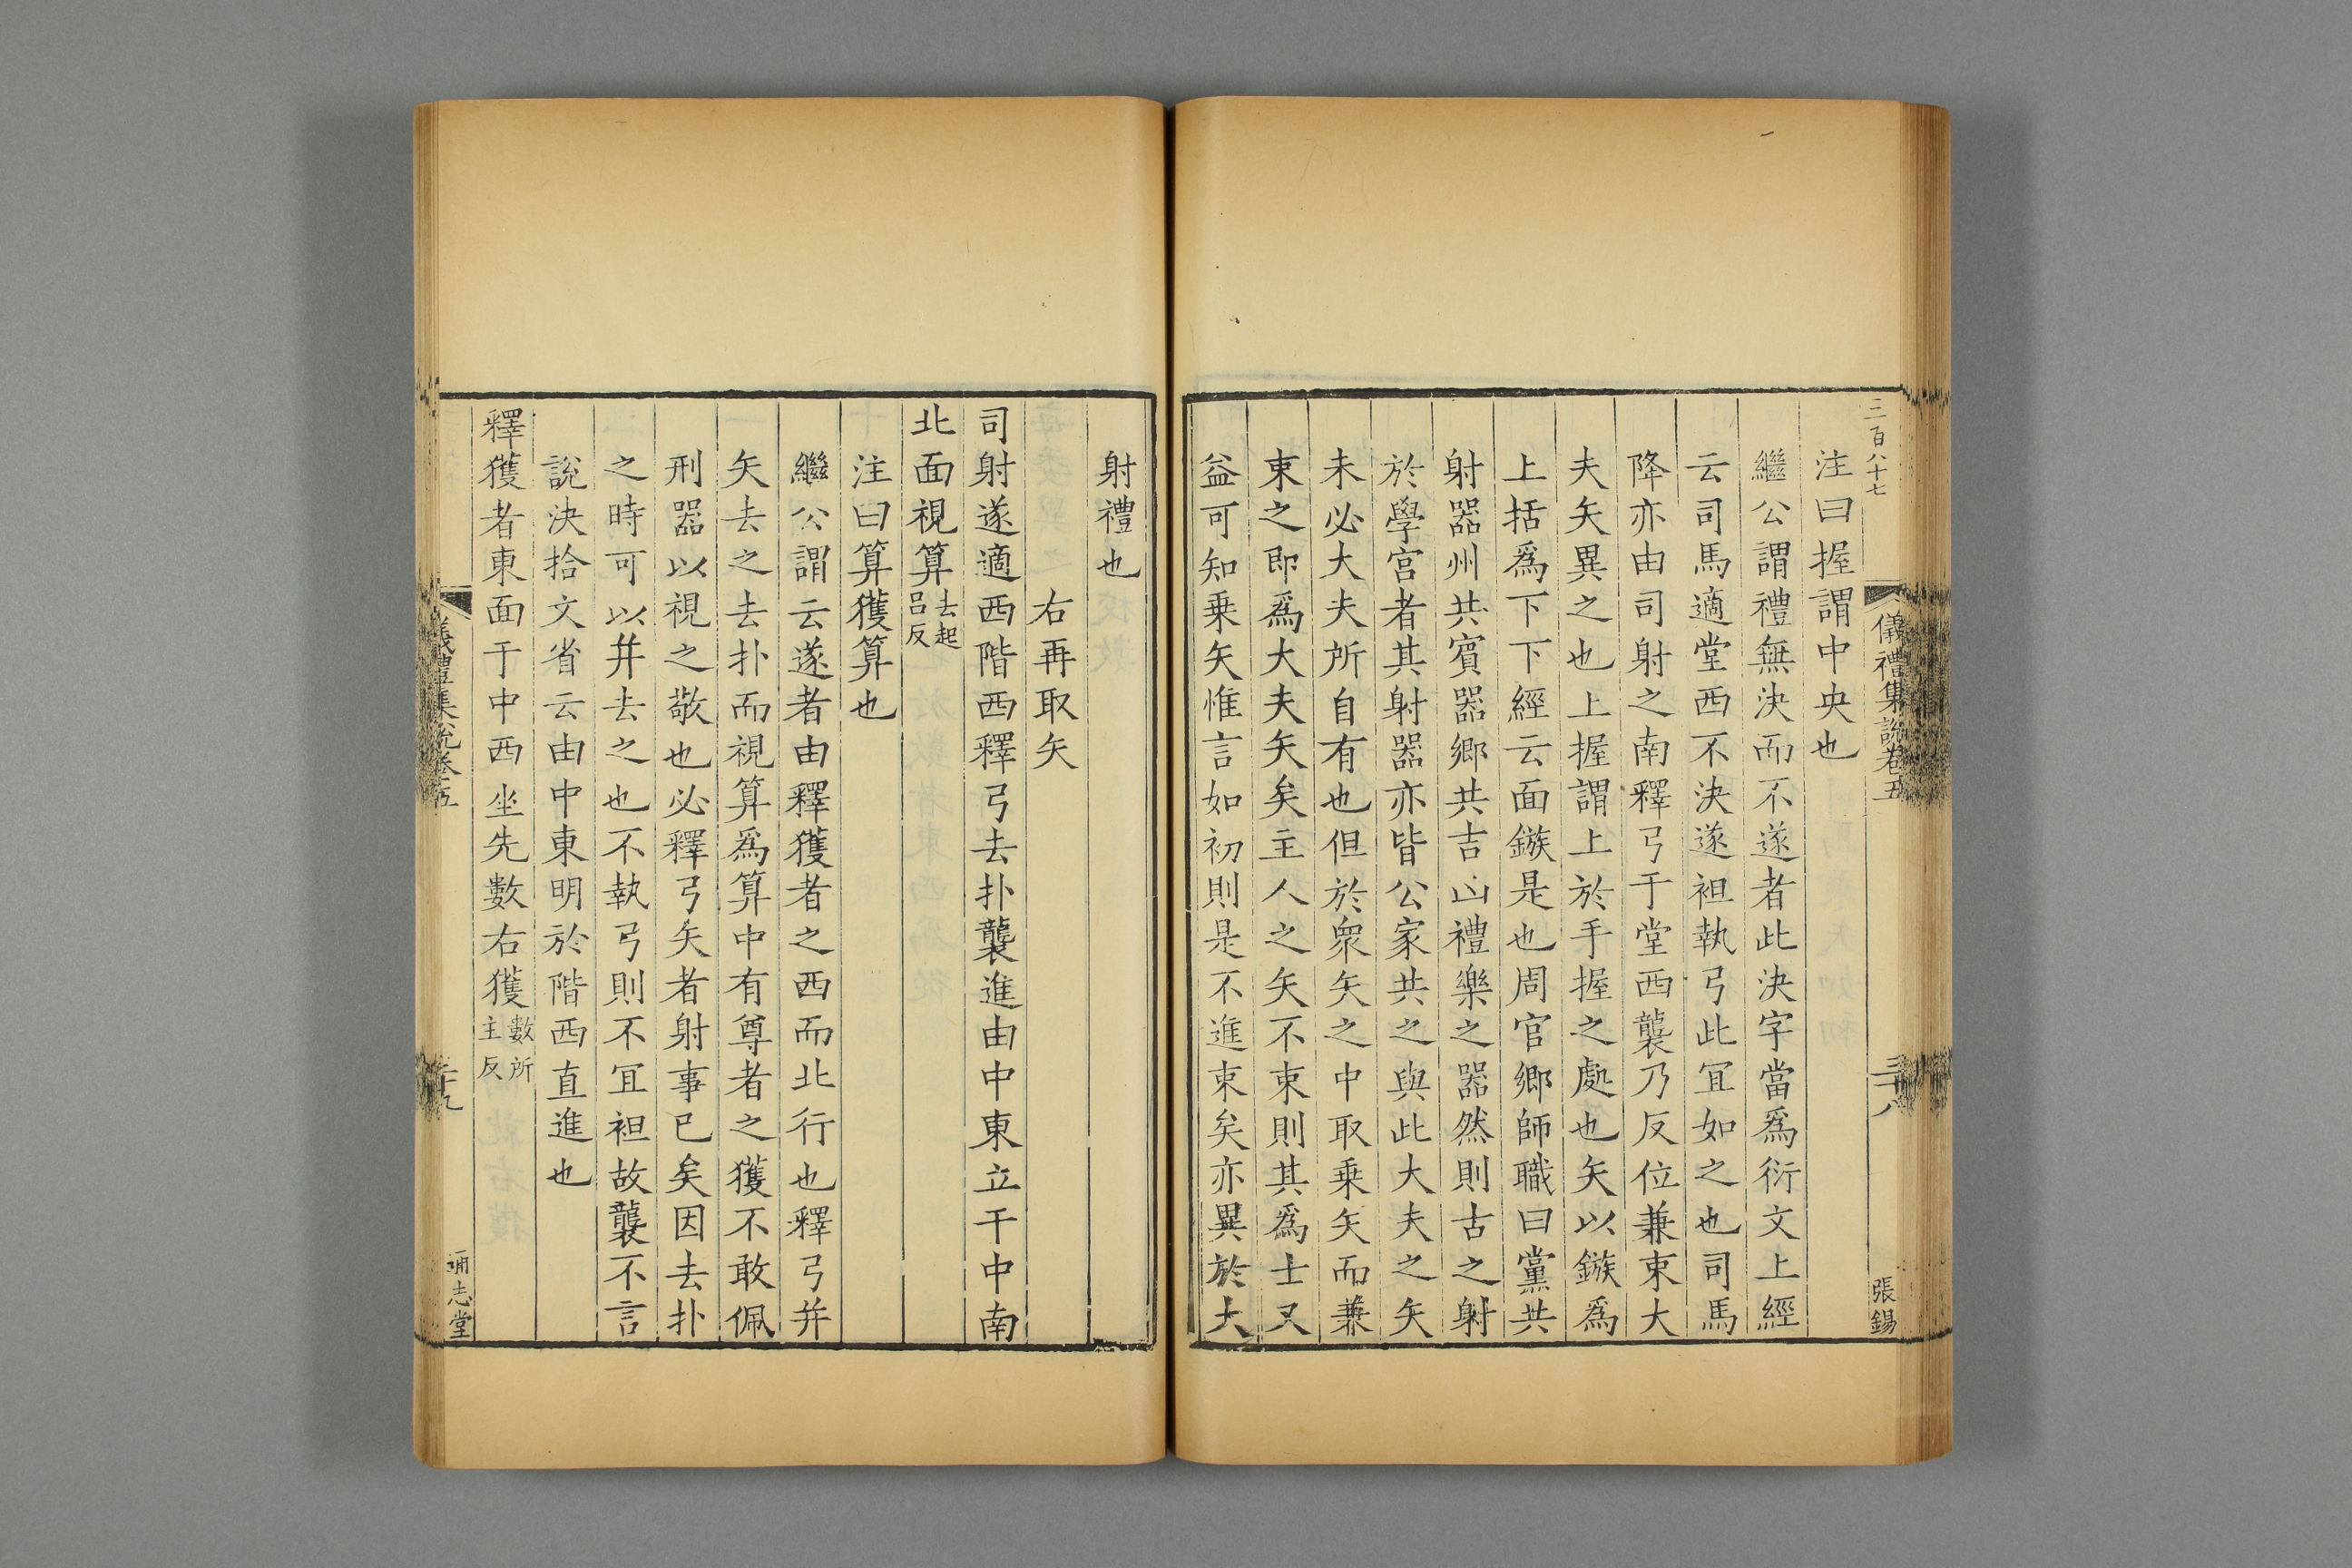 三百八十七
儀禮集說卷五
三十八
張錫
注曰握謂中央也
繼公謂禮無決而不遂者此決字當爲衍文上經
云司馬適堂西不決遂袒執弓此冝如之也司馬
降亦由司射之南釋弓于堂西襲乃反位兼束大
夫矢異之也上握謂上於手握之處也矢以鏃爲
上括爲下下經云面鏃是也周官鄉師職曰黨共
射器州共賓器鄉共吉凶禮樂之器然則古之射
於學宮者其射器亦皆公家共之與此大夫之矢
未必大夫所自有也但於衆矢之中取乗矢而兼
束之即爲大夫矢矣主人之矢不束則其爲士又
益可知乗矢惟言如初則是不進束矣亦異於大
射禮也
右再取矢
司射遂適西階西釋弓去扑襲進由中東立于中南
北面視算去起呂反
注曰算獲算也
繼公謂云遂者由釋獲者之西而北行也釋弓并
矢去之去扑而視算爲算中有尊者之獲不敢佩
刑器以視之敬也必釋弓矢者射事已矣因去扑
之時可以并去之也不執弓則不冝袒故襲不言
說決拾文省云由中東明於階西直進也
釋獲者東面于中西坐先數右獲數所主反
儀禮集說卷五
三十九
通志堂